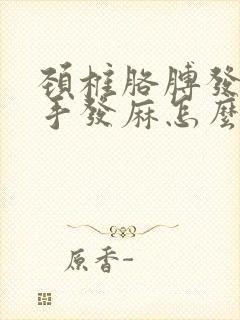 頸椎胳膊發
手發麻怎麼
原香-